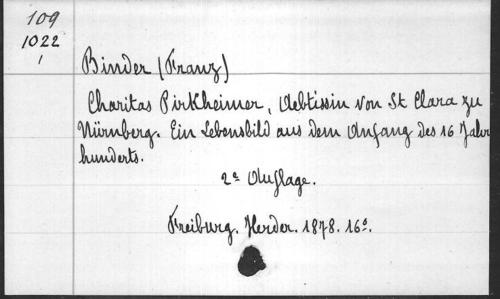 109
1022
1
Binder (Franz)
Charitas Pirkheimer, Aebtissin von St Clara zu
Nürnberg. Ein Lebensbild aus dem Anfang des 16 Jahr
hunderts.
2e Auflage.
Freiburg. Herder. 1878. 16o.